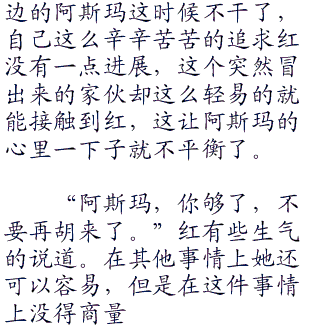 边的阿斯玛这时候不干了，
自己这么辛辛苦苦的追求红
没有一点进展，这个突然冒
出来的家伙却这么轻易的就
能接触到红，这让阿斯玛的
心里一下子就不平衡了。
“阿斯玛，你够了，不
要再胡来了。”红有些生气
的说道。在其他事情上她还
可以容易，但是在这件事情
上没得商量